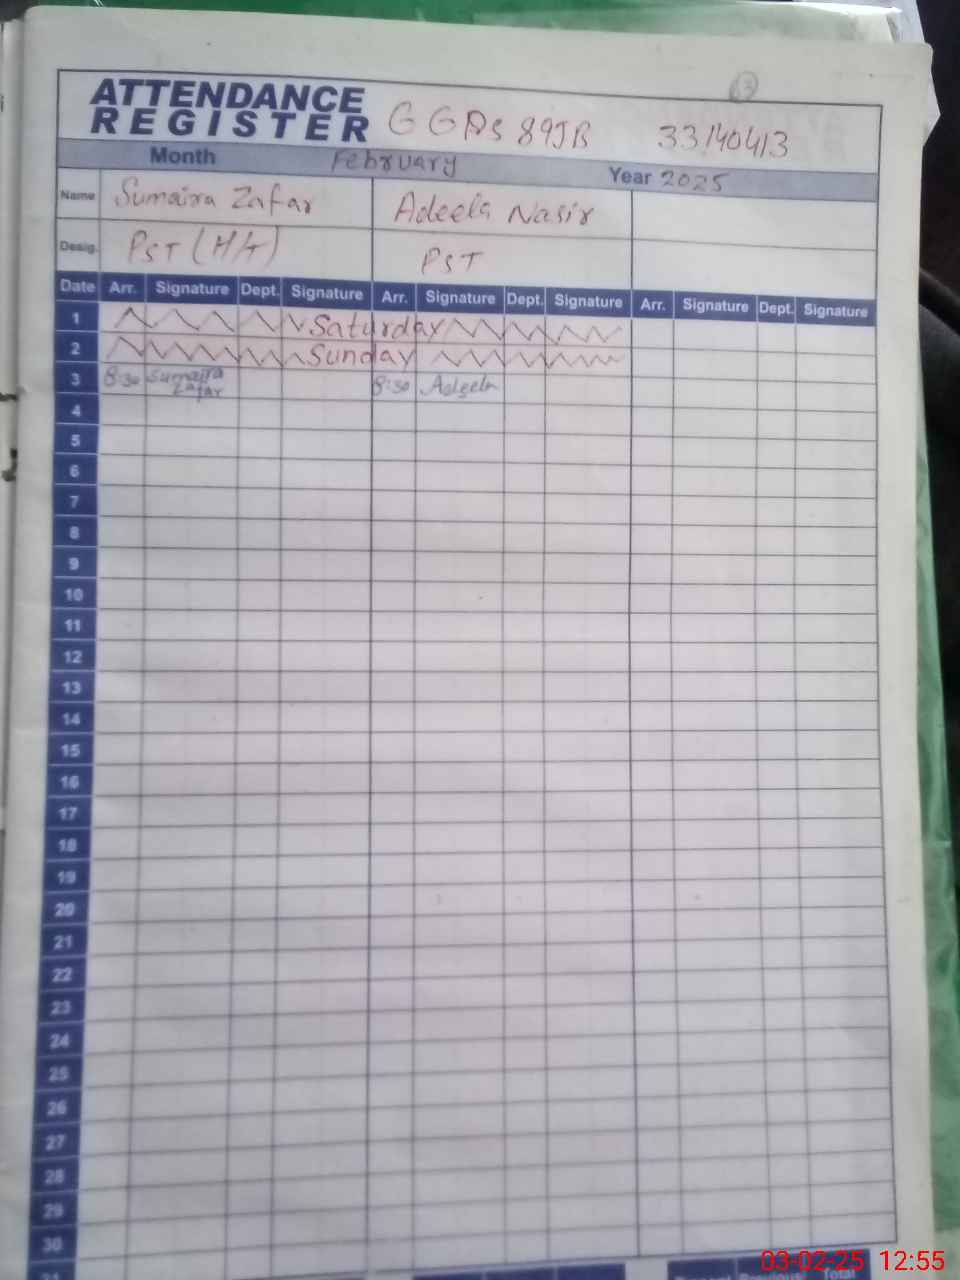 13
ATTENDANCE
REGISTER GGPS 89JB 33140413
Month February Year 2025
Name Sumaira Zafar Adeela Nasir
Desig. PST (H/T) PST
Date Arr. Signature Dept. Signature Arr. Signature Dept. Signature Arr. Signature Dept. Signature
1 Saturday
2 Sunday
3 8:30 Sumaira Zafar 8:30 Adeela
4
5
6
7
8
9
10
11
12
13
14
15
16
17
18
19
20
21
22
23
24
25
26
27
28
29
30
31 Present Previous Total
03-02-25 12:55